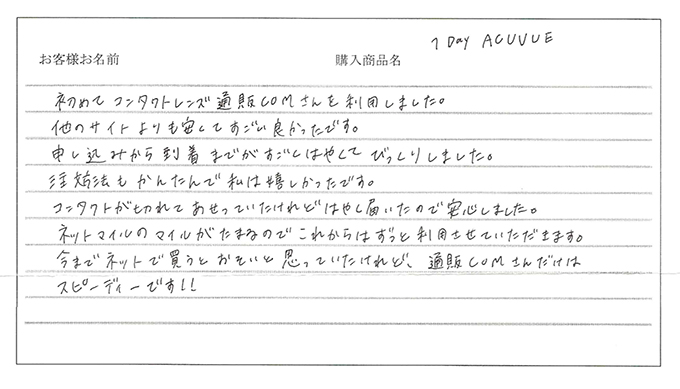 1 Day ACUVUE
お客様お名前 購入商品名
初めてコンタクトレンズ通販COMさんを利用しました。
他のサイトよりも安くてすごい良かったです。
申し込みから到着までがすごくはやくてびっくりしました。
注文方法もかんたんで私は嬉しかったです。
コンタクトが切れてあせっていたけれどはやく届いたので安心しました。
ネットマイルのマイルがたまるのでこれからはずっと利用させていただきます。
今までネットで買うとおそいと思っていたけれど、通販COMさんだけは
スピーディーです!!